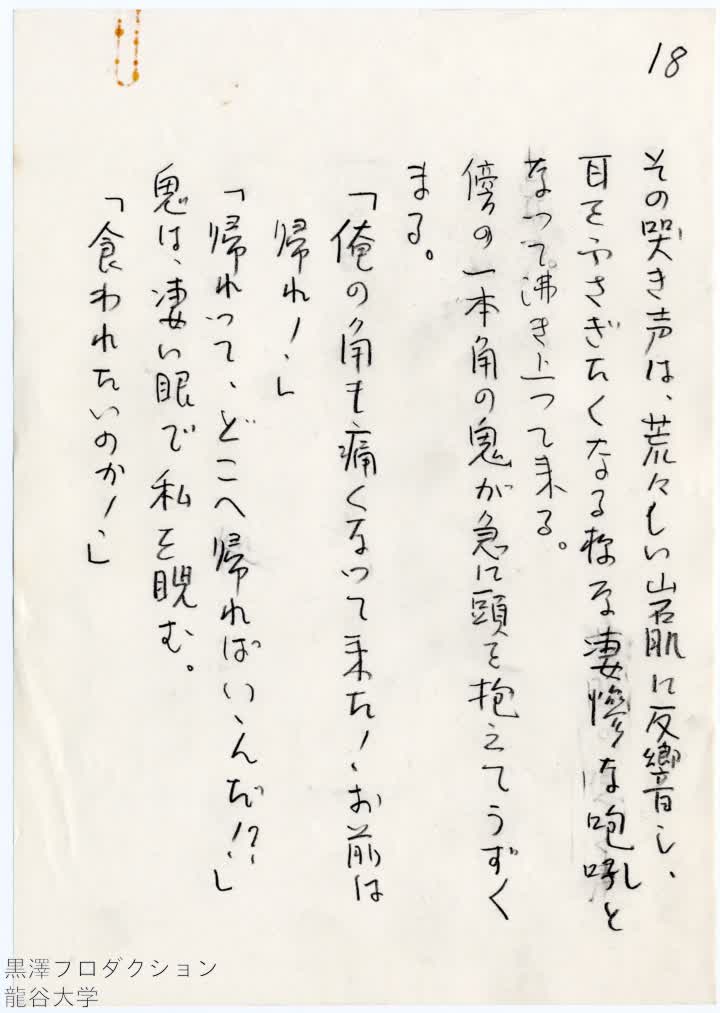 18
その哭き声は、荒々しい岩肌に反響し、
耳をふさぎたくなる様な凄惨な咆吼と
なって沸き上って来る。
傍の一本角の鬼が急に頭を抱えてうずく
まる。
「俺の角も痛くなって来た！お前は
帰れ！」
「帰れって、どこへ帰ればいゝんだ！？」
鬼は、凄い眼で私を睨む。
「食われたいのか！」
黒澤プロダクション
龍谷大学